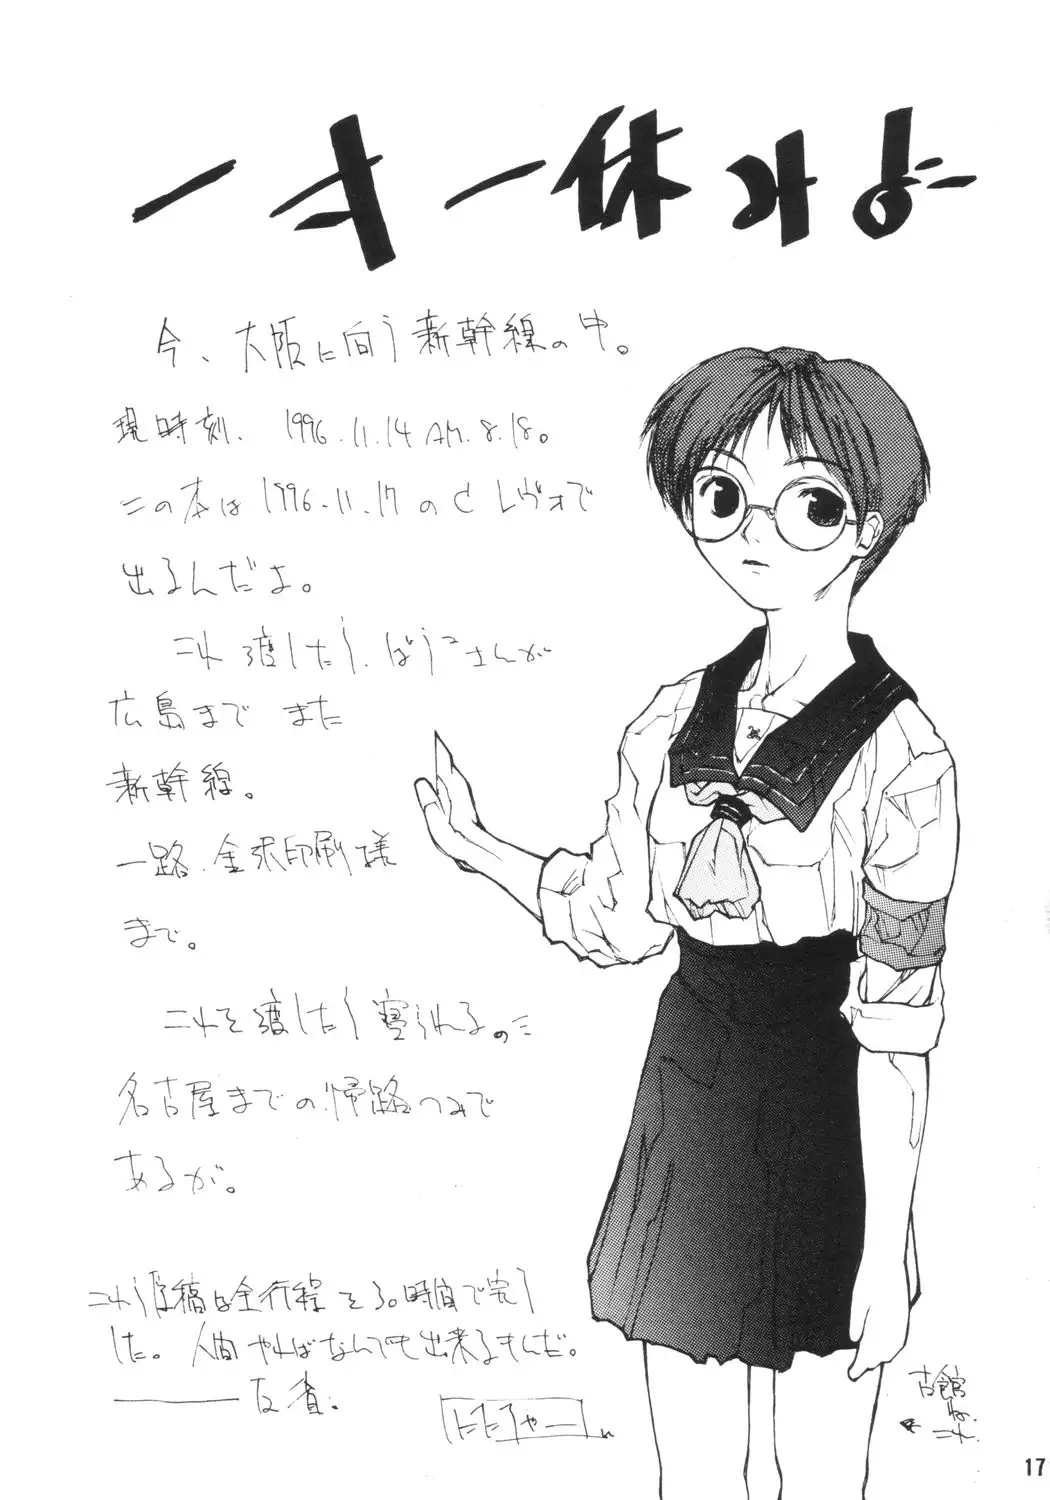 今、大阪に向う新幹線の中。
現時刻、1996.11.14 AM.8.18。
この本は1996.11.17のCレヴォで
出るんだよ。
これ渡したら、ばうこさんが
広島まで また
新幹線。
一路、金沢印刷様
まで。
これを渡したら寝られるのに
名古屋までの帰路つみで
あるが。
これら原稿は全行程を30時間で完了
した。人間やればなんでも出来るもんだ。
――反省。
古館
ね、
これ
17